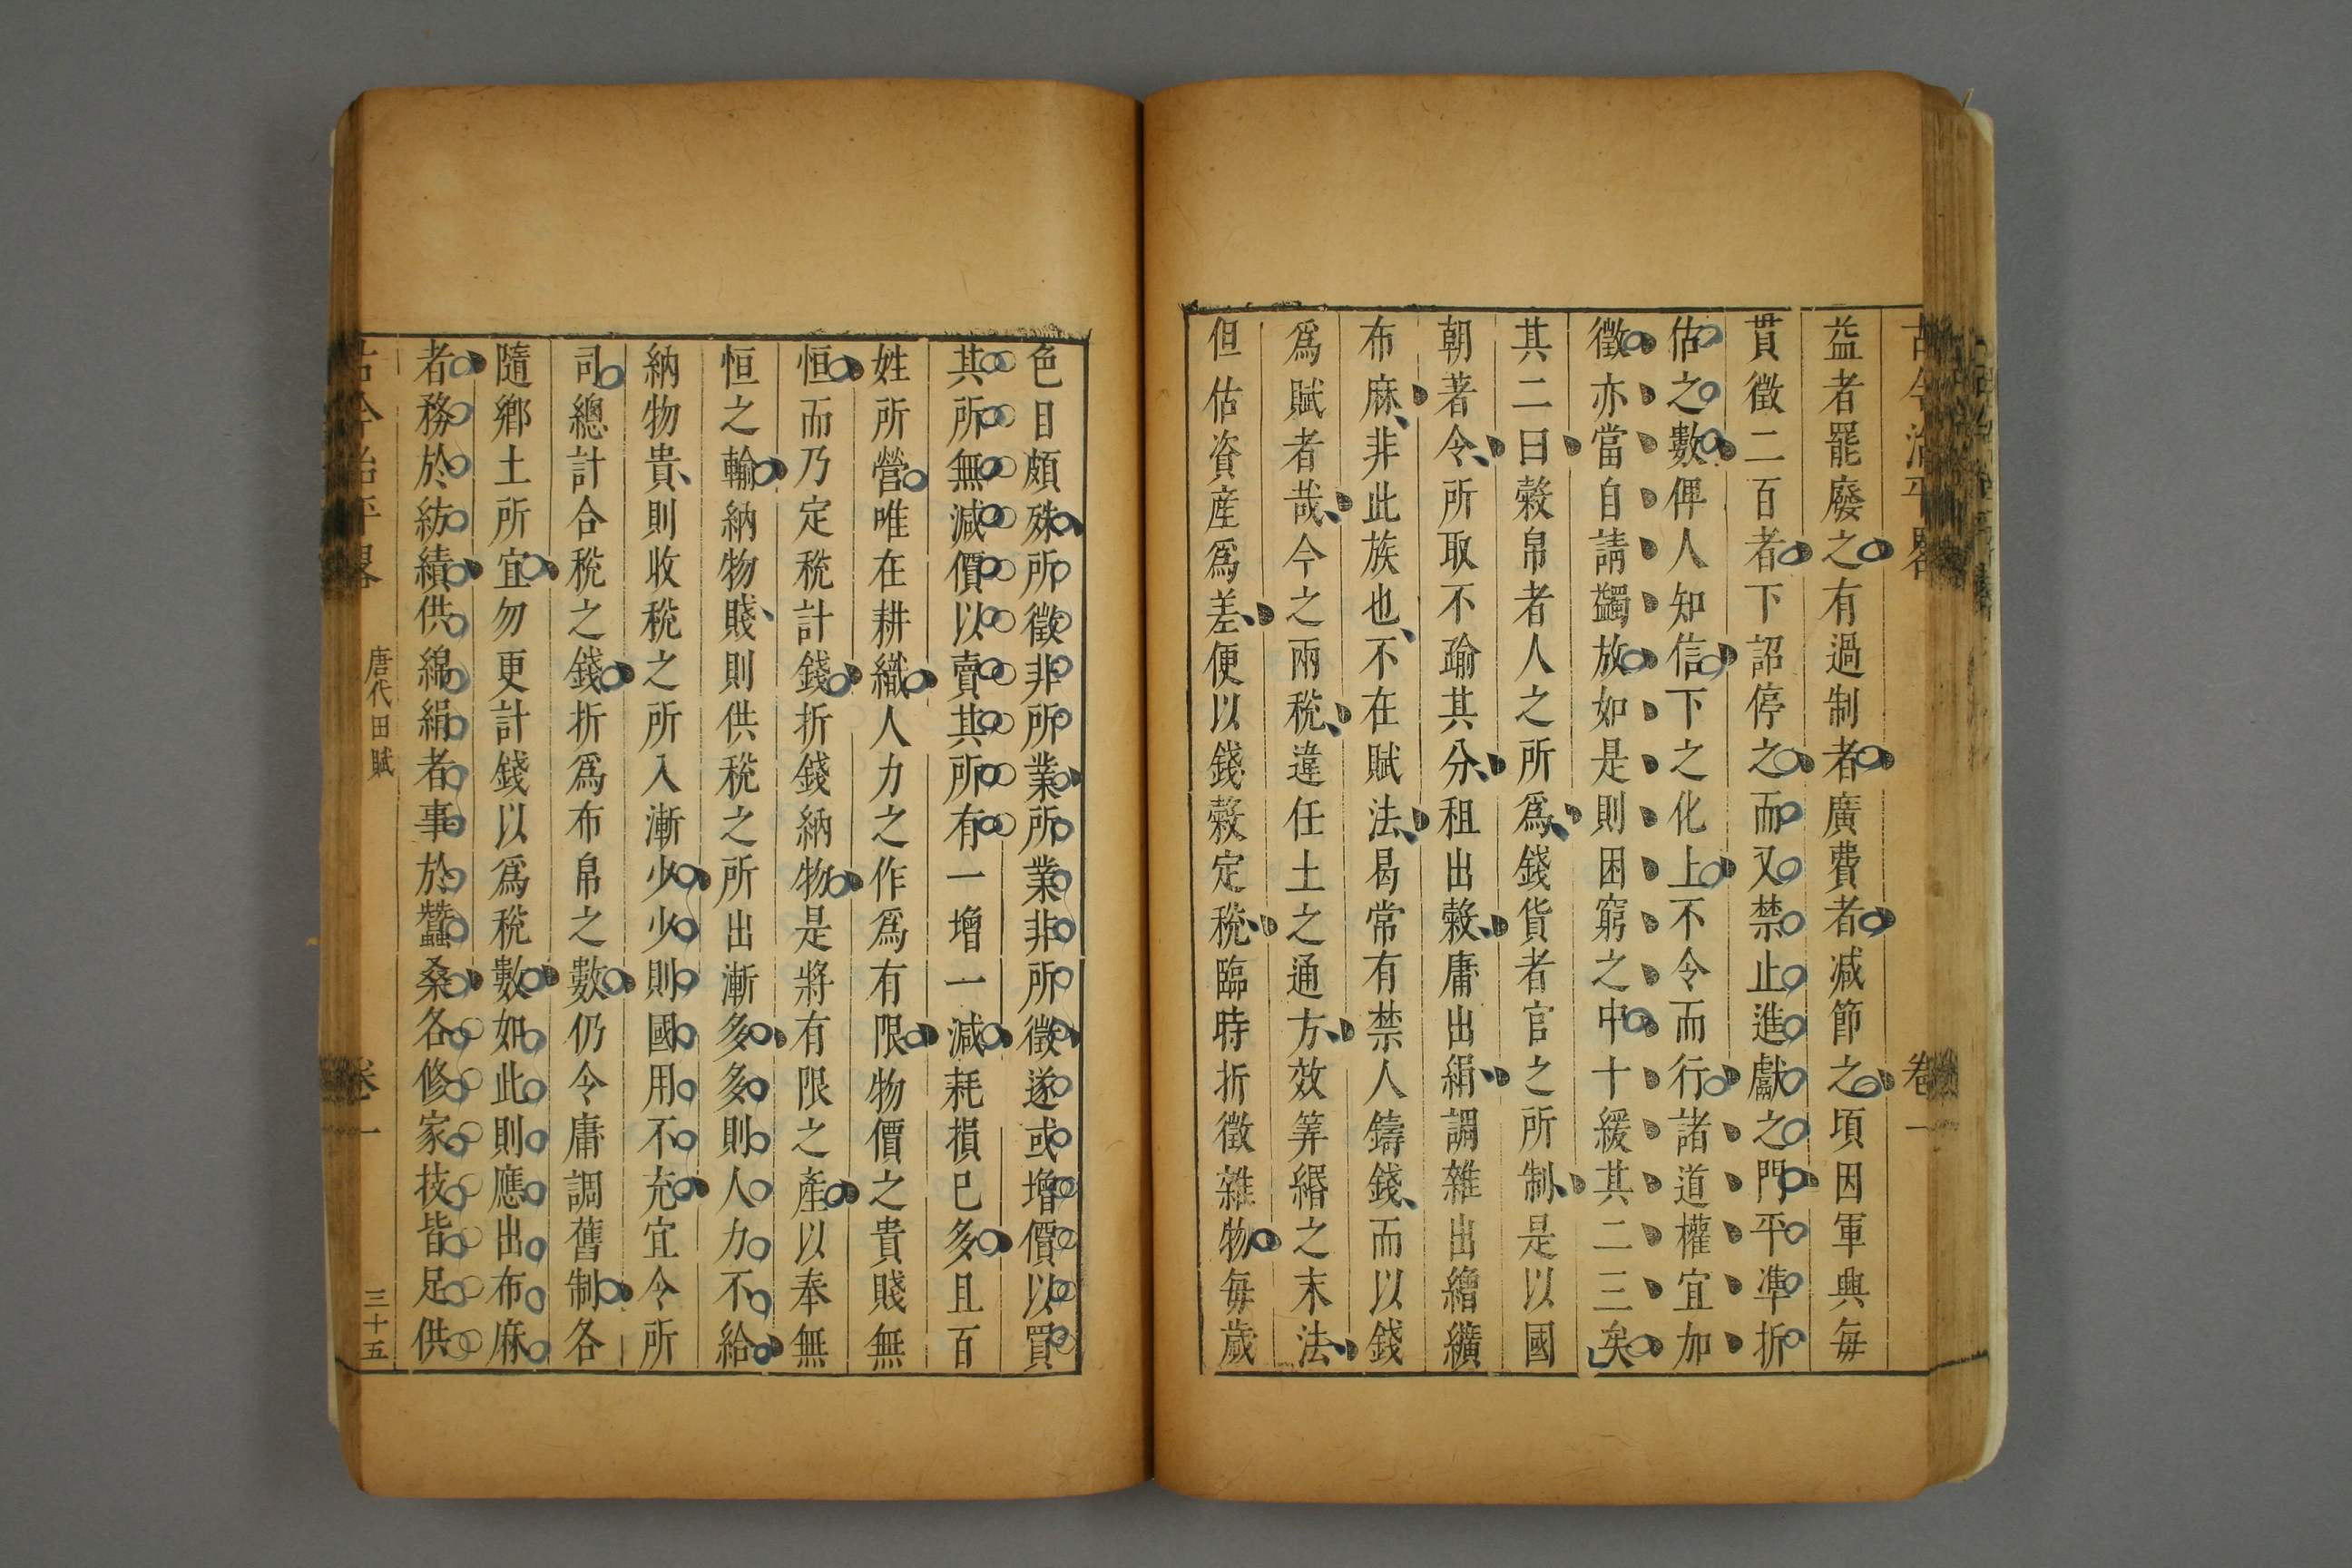 古今治平畧 卷一
益者罷廢之有過制者廣費者减節之項因軍興每
貫徵二百者下詔停之而又禁止進獻之門平準折
估之數俾人知信下之化上不令而行諸道權宜加
徵亦當自請蠲放如是則困窮之中十緩其二三矣
其二曰榖帛者人之所爲錢貨者官之所制是以國
朝著令所取不踰其分租出榖庸出絹調雜出繒纊
布麻非此族也不在賦法曷常有禁人鑄錢而以錢
爲賦者哉今之兩稅違任土之通方效筭緡之末法
但估資産爲差便以錢榖定稅臨時折徵雜物每歲
色目頗殊所徵非所業所業非所徵遂或增價以買
其所無減價以賣其所有一增一減耗損已多且百
姓所營唯在耕織人力之作爲有限物價之貴賤無
恒而乃定稅計錢折錢納物是將有限之產以奉無
恒之輸納物賤則供稅之所出漸多多則人力不給
納物貴則收稅之所入漸少少則國用不充宜令所
司總計合稅之錢折爲布帛之數仍令庸調舊制各
隨鄉土所宜勿更計錢以爲稅數如此則應出布麻
者務於紡績供綿絹者事於蠶桑各修家技皆足供
古今治平畧 唐代田賦 卷一 三十五